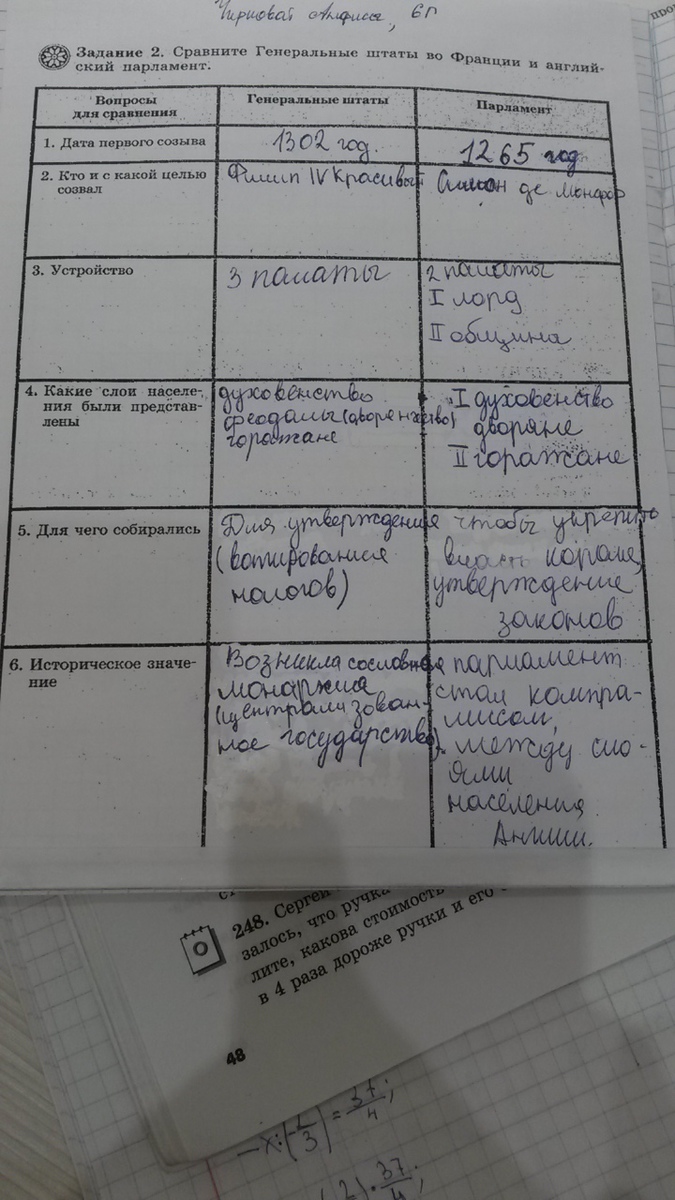 Чирковой Анфисы, 6П
Задание 2. Сравните Генеральные штаты во Франции и англий-
ский парламент.
Вопросы
для сравнения
Генеральные штаты
Парламент
1. Дата первого созыва
1302 год.
1265 год
2. Кто и с какой целью
созвал
Филип IV Красивый
Симон де Монфор
3. Устройство
3 палаты
2 палаты
I лорд
II община
4. Какие слои населе-
ния были представ-
лены
духовенство
феодалы (дворенчство)
горажане
I духовенство
дворяне
II горажане
5. Для чего собирались
Для утверждения
(вотирования
налогов)
чтобы укрепить
власть короля,
утверждение
законов
6. Историческое значе-
ние
Возникла сословная
монархия
(централизован-
ное государство).
парламент
стал компра-
мисом,
между сло-
ями
населения
Англии.
248. Сергей
залось, что ручка
лите, какова стоимость
в 4 раза дороже ручки и его
48
-x:(-2/3) = 37/4;
2) · 37/4;